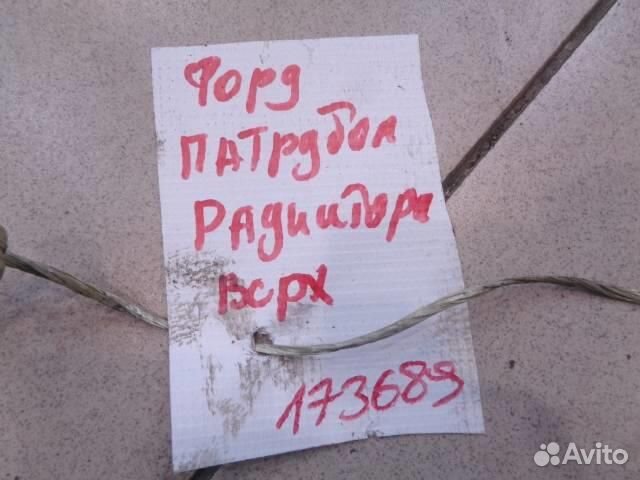 Форд
ПАТрубок
РАдиаТора
Верх
173689
Avito